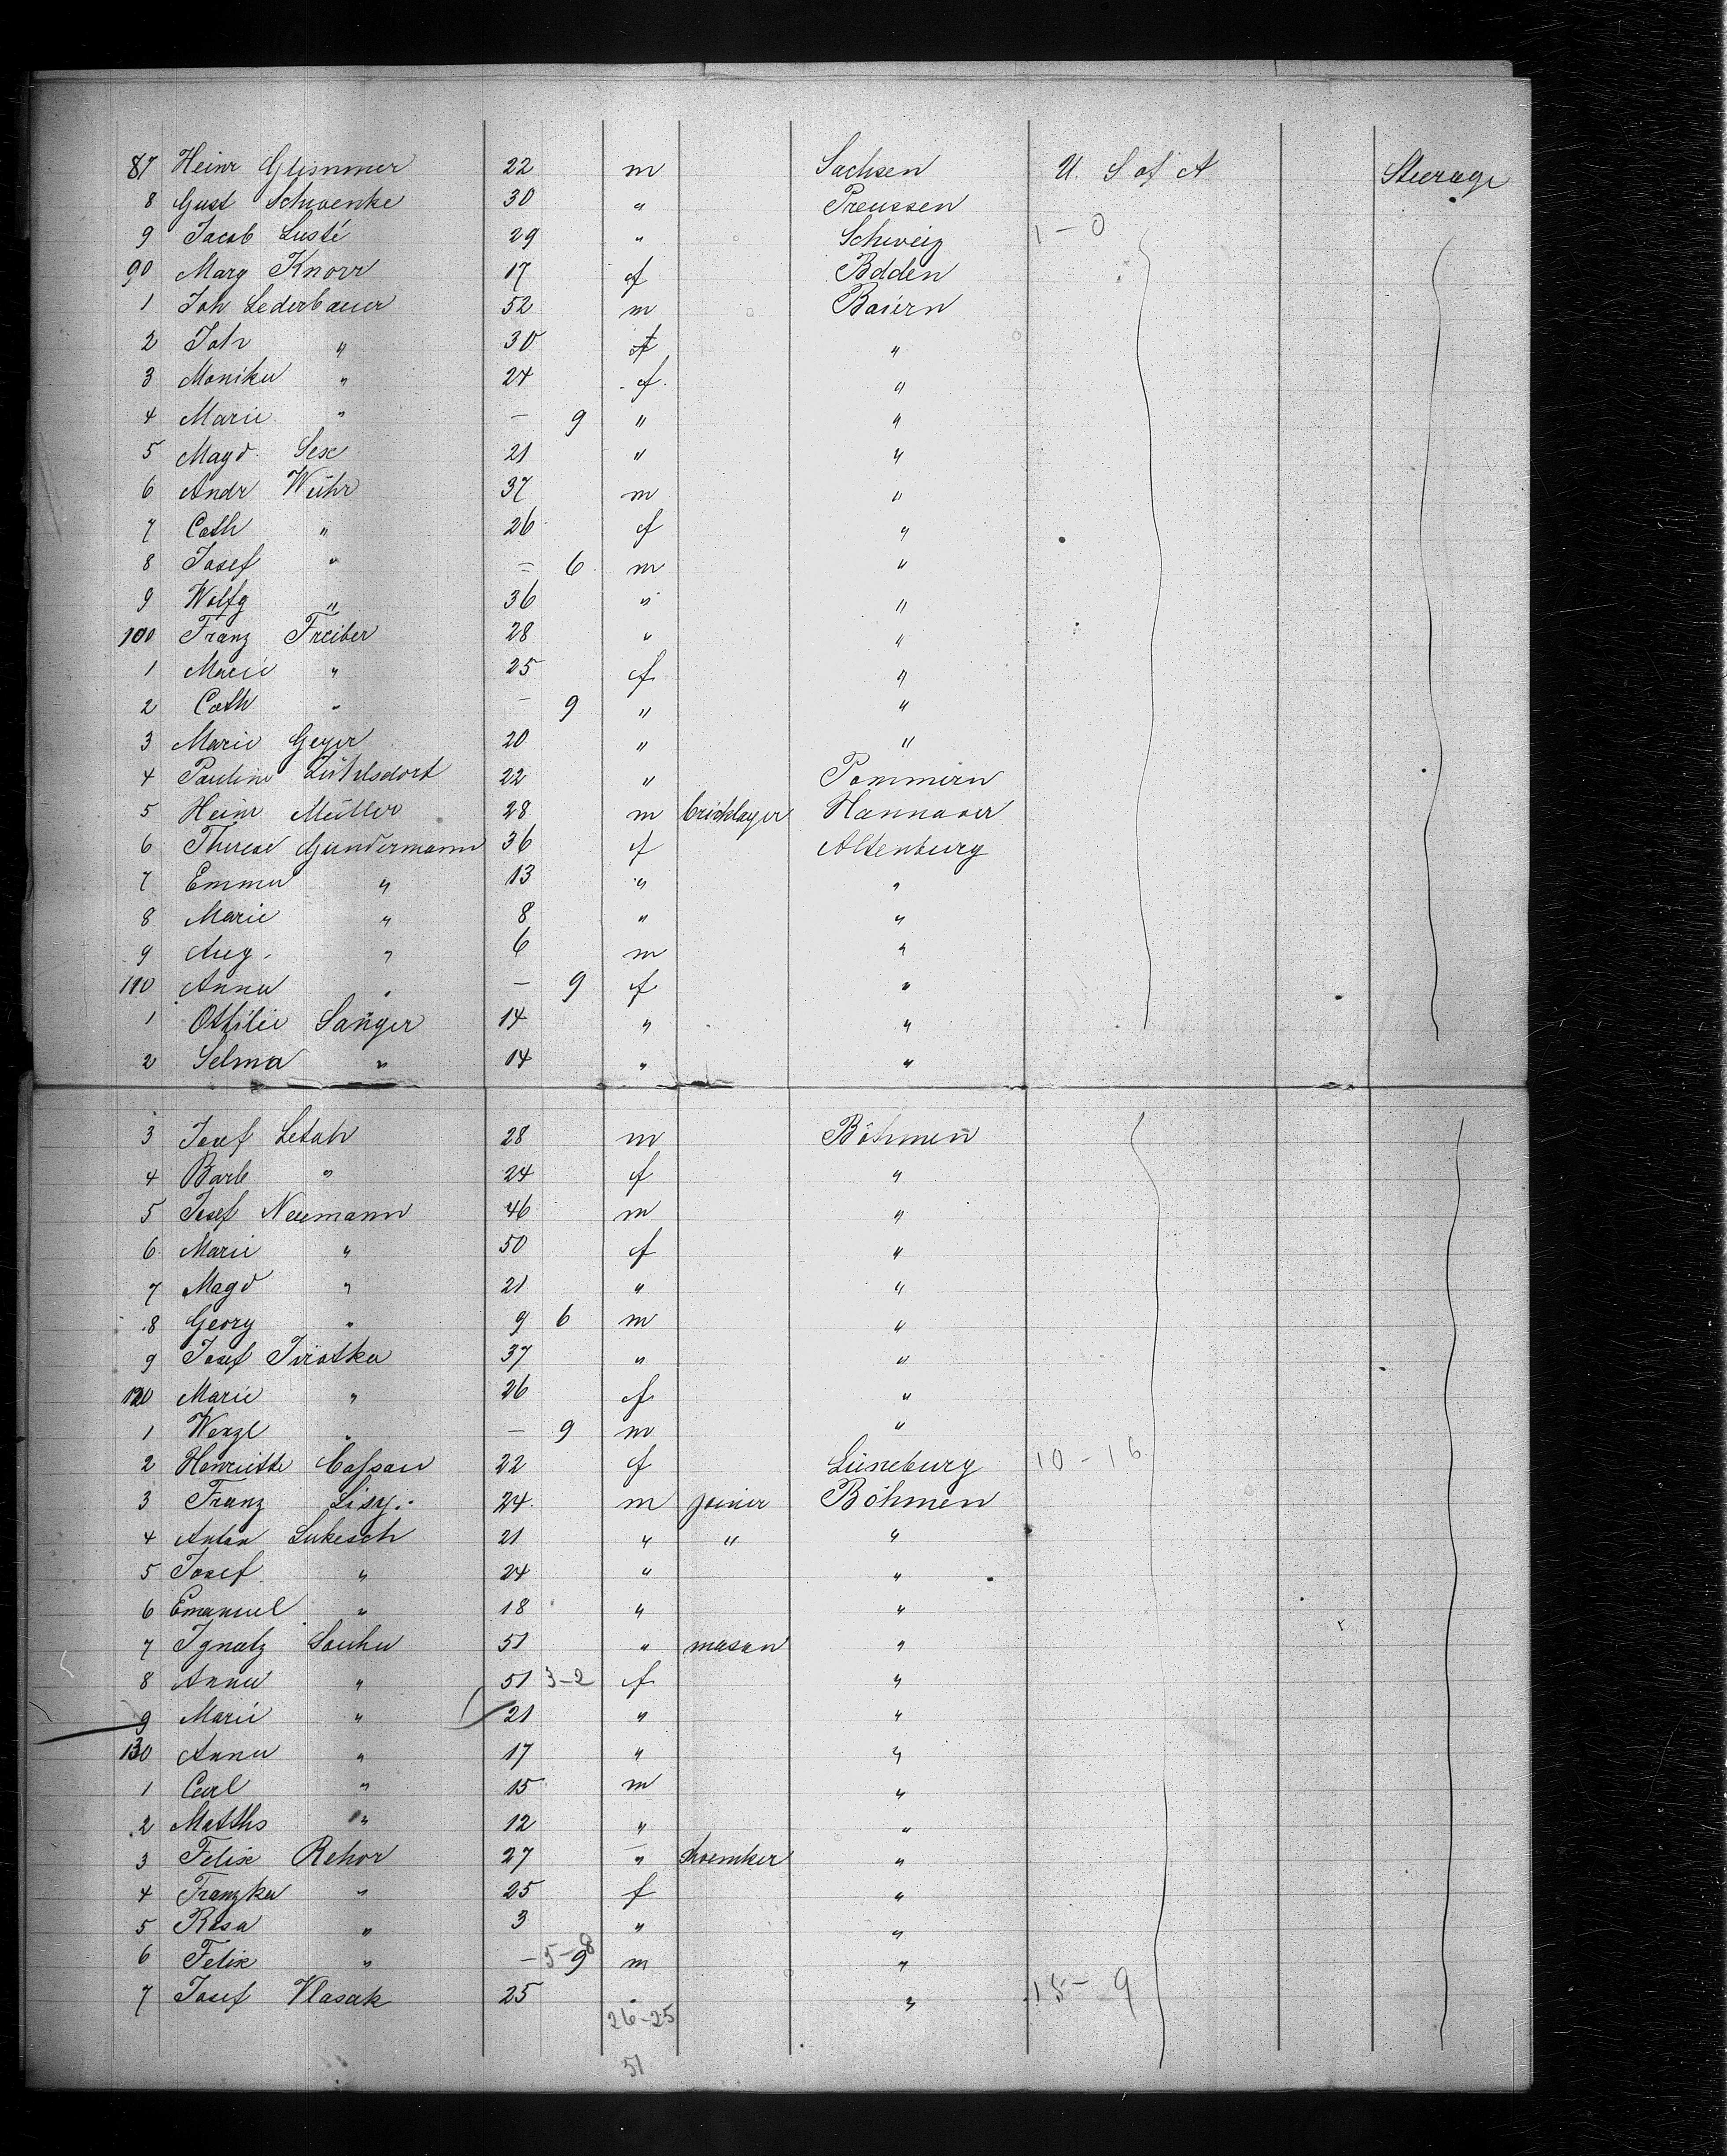 87 Heinr Glimmer 22 m Sachsen U. S of A Steerage
8 Gust Schwenke 30 " Preussen
9 Jacob Lusté 29 " Schweiz 1-0
90 Marg Knorr 17 f Baden
1 Joh Lederbauer 52 m Baiern
2 Joh " 30 "
3 Monika " 24 f "
4 Marie " — 9 " "
5 Magd. Sex 21 " "
6 Andr Wühr 37 m "
7 Cath " 26 f "
8 Josef " — 6 m "
9 Wolfg " 36 " "
100 Franz Freiber 28 " "
1 Marie " 25 f "
2 Cath " — 9 " "
3 Marie Geyer 20 " "
4 Pauline 22 " Pommern
5 Heinr Müller 28 m bricklayer Hannover
6 Therese Gundermann 36 f Altenburg
7 Emma " 13 " "
8 Marie " 8 " "
9 Aug. " 6 m "
110 Anna " — 9 f "
1 Ottilie Sänger 14 " "
2 Selma " 14 " "
3 Josef Letah 28 m Böhmen
4 Barb " 24 f "
5 Josef Neumann 46 m "
6 Marie " 50 f "
7 Magd " 21 " "
8 Georg " 9 6 m "
9 Josef 37 " "
120 Marie " 26 f "
1 Wenzl " — 9 m "
2 Henriette Cassau 22 f Lüneburg 10-16
3 Franz Lisy. 24 m joiner Böhmen
4 Anton Lukesch 21 " " "
5 Josef " 24 " "
6 Emanuel " 18 " "
7 Ignatz Souhu 51 " mason "
8 Anna " 51 3-2 f "
9 Marie " 21 " "
130 Anna " 17 " "
1 Carl " 15 m "
2 Matths " 12 " "
3 Felix Rehor 27 " shoemker "
4 Franzka " 25 f "
5 Rosa " 3 " "
6 Felix " — 5-8 9 m "
7 Josef Vlasak 25 " " 15-9
26-25
51